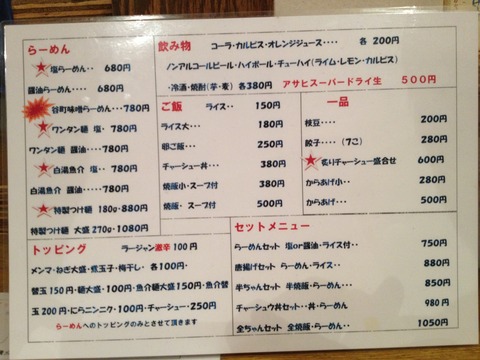 らーめん
塩らーめん・・ 680円
醤油らーめん・・・・ 680円
谷町味噌らーめん・・・780円
ワンタン麺 塩・ 780円
ワンタン麺 醤油・・・・ 780円
白湯魚介 塩・・ 780円
白湯魚介 醤油・・・・・780円
特製つけ麺 180g・880円
特製つけ麺 大盛 270g・1080円
飲み物 コーラ・カルピス・オレンジジュース・・・・ 各 200円
ノンアルコールビール・ハイボール・チューハイ(ライム・レモン・カルピス)
・冷酒・焼酎(芋・麦) 各380円 アサヒスーパードライ生 500円
ご飯 ライス・・ 150円
ライス大・・・ 180円
卵ご飯・・・ 250円
チャーシュー丼・・・ 380円
焼飯小・スープ付 380円
焼飯・ スープ付 500円
一品
枝豆・・・ 200円
餃子・・・・(7こ) 280円
炙りチャーシュー盛合せ 600円
からあげ小・・ 280円
からあげ・・・ 500円
トッピング ラージャン激辛 100円
メンマ・ねぎ大盛・煮玉子・梅干し 各100円・
替玉150円・麺大盛・100円・魚介麺大盛150円・魚介替
玉 200円・にらニンニク・100円・チャーシュー・250円
らーめんへのトッピングのみとさせて頂きます
セットメニュー
らーめんセット 塩or醤油・ライス付・・ 750円
唐揚げセット らーめん・ライス・・ 880円
半ちゃんセット 半焼飯・らーめん・・ 850円
チャーシュウ丼セット・・丼・らーめん 980円
全ちゃんセット 全焼飯・らーめん・・ 1050円